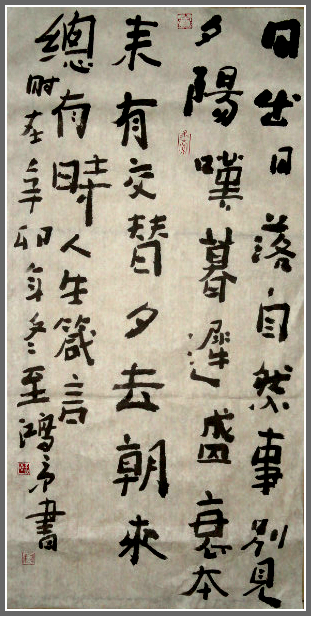 日出日落自然事別見
夕陽嘆暮遲盛衰本
来有交替夕去朝來
總有時人生箴言
时在辛卯年冬至鴻書